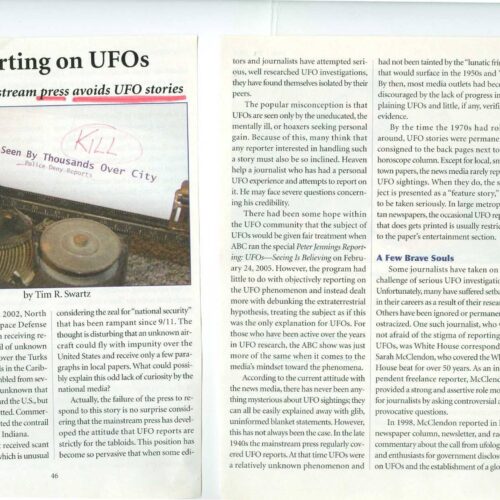 rting on UFOs
stream press avoids UFO stories
KILL
Seen By Thousands Over City
Police Deny Reports
by Tim R. Swartz
2002, North
pace Defense
n receiving re-
l of unknown
ver the Turks
ds in the Carib-
bled from sev-
unknown that
rd the U.S., but
tted. Commer-
ted the contrail
Indiana.
t received scant
which is unusual
considering the zeal for "national security"
that has been rampant since 9/11. The
thought is disturbing that an unknown air-
craft could fly with impunity over the
United States and receive only a few para-
graphs in local papers. What could possi-
bly explain this odd lack of curiosity by the
national media?
Actually, the failure of the press to re-
spond to this story is no surprise consid-
ering that the mainstream press has devel-
oped the attitude that UFO reports are
strictly for the tabloids. This position has
become so pervasive that when some edi-
46
tors and journalists have attempted seri-
ous, well researched UFO investigations,
they have found themselves isolated by their
peers.
The popular misconception is that
UFOs are seen only by the uneducated, the
mentally ill, or hoaxers seeking personal
gain. Because of this, many think that
any reporter interested in handling such
a story must also be so inclined. Heaven
help a journalist who has had a personal
UFO experience and attempts to report on
it. He may face severe questions concern-
ing his credibility.
There had been some hope within
the UFO community that the subject of
UFOs would be given fair treatment when
ABC ran the special Peter Jennings Report-
ing: UFOs—Seeing Is Believing on Febru-
ary 24, 2005. However, the program had
little to do with objectively reporting on
the UFO phenomenon and instead dealt
more with debunking the extraterrestrial
hypothesis, treating the subject as if this
was the only explanation for UFOs. For
those who have been active over the years
in UFO research, the ABC show was just
more of the same when it comes to the
media's mindset toward the phenomena.
According to the current attitude with
the news media, there has never been any-
thing mysterious about UFO sightings; they
can all be easily explained away with glib,
uninformed blanket statements. However,
this has not always been the case. In the late
1940s the mainstream press regularly cov-
ered UFO reports. At that time UFOs were
a relatively unknown phenomenon and
had not been tainted by the "lunatic frin
that would surface in the 1950s and
By then, most media outlets had becom
discouraged by the lack of progress in
plaining UFOs and little, if any, verifi
evidence.
By the time the 1970s had ro
around, UFO stories were permanen
consigned to the back pages next to
horoscope column. Except for local, sm
town papers, the news media rarely repo
UFO sightings. When they do, the s
ject is presented as a "feature story,"
to be taken seriously. In large metropo
tan newspapers, the occasional UFO rep
that does gets printed is usually restric
to the paper's entertainment section.
A Few Brave Souls
Some journalists have taken on
challenge of serious UFO investigatio
Unfortunately, many have suffered setba
in their careers as a result of their resear
Others have been ignored or permanen
ostracized. One such journalist, who
not afraid of the stigma of reporting
UFOs, was White House correspond
Sarah McClendon, who covered the Wh
House beat for over 50 years. As an in
pendent freelance reporter, McClen
provided a strong and assertive role mo
for journalists by asking controversial a
provocative questions.
In 1998, McClendon reported in
newspaper column, newsletter, and rad
commentary about the call from ufolog
and enthusiasts for government disclos
on UFOs and the establishment of a glo